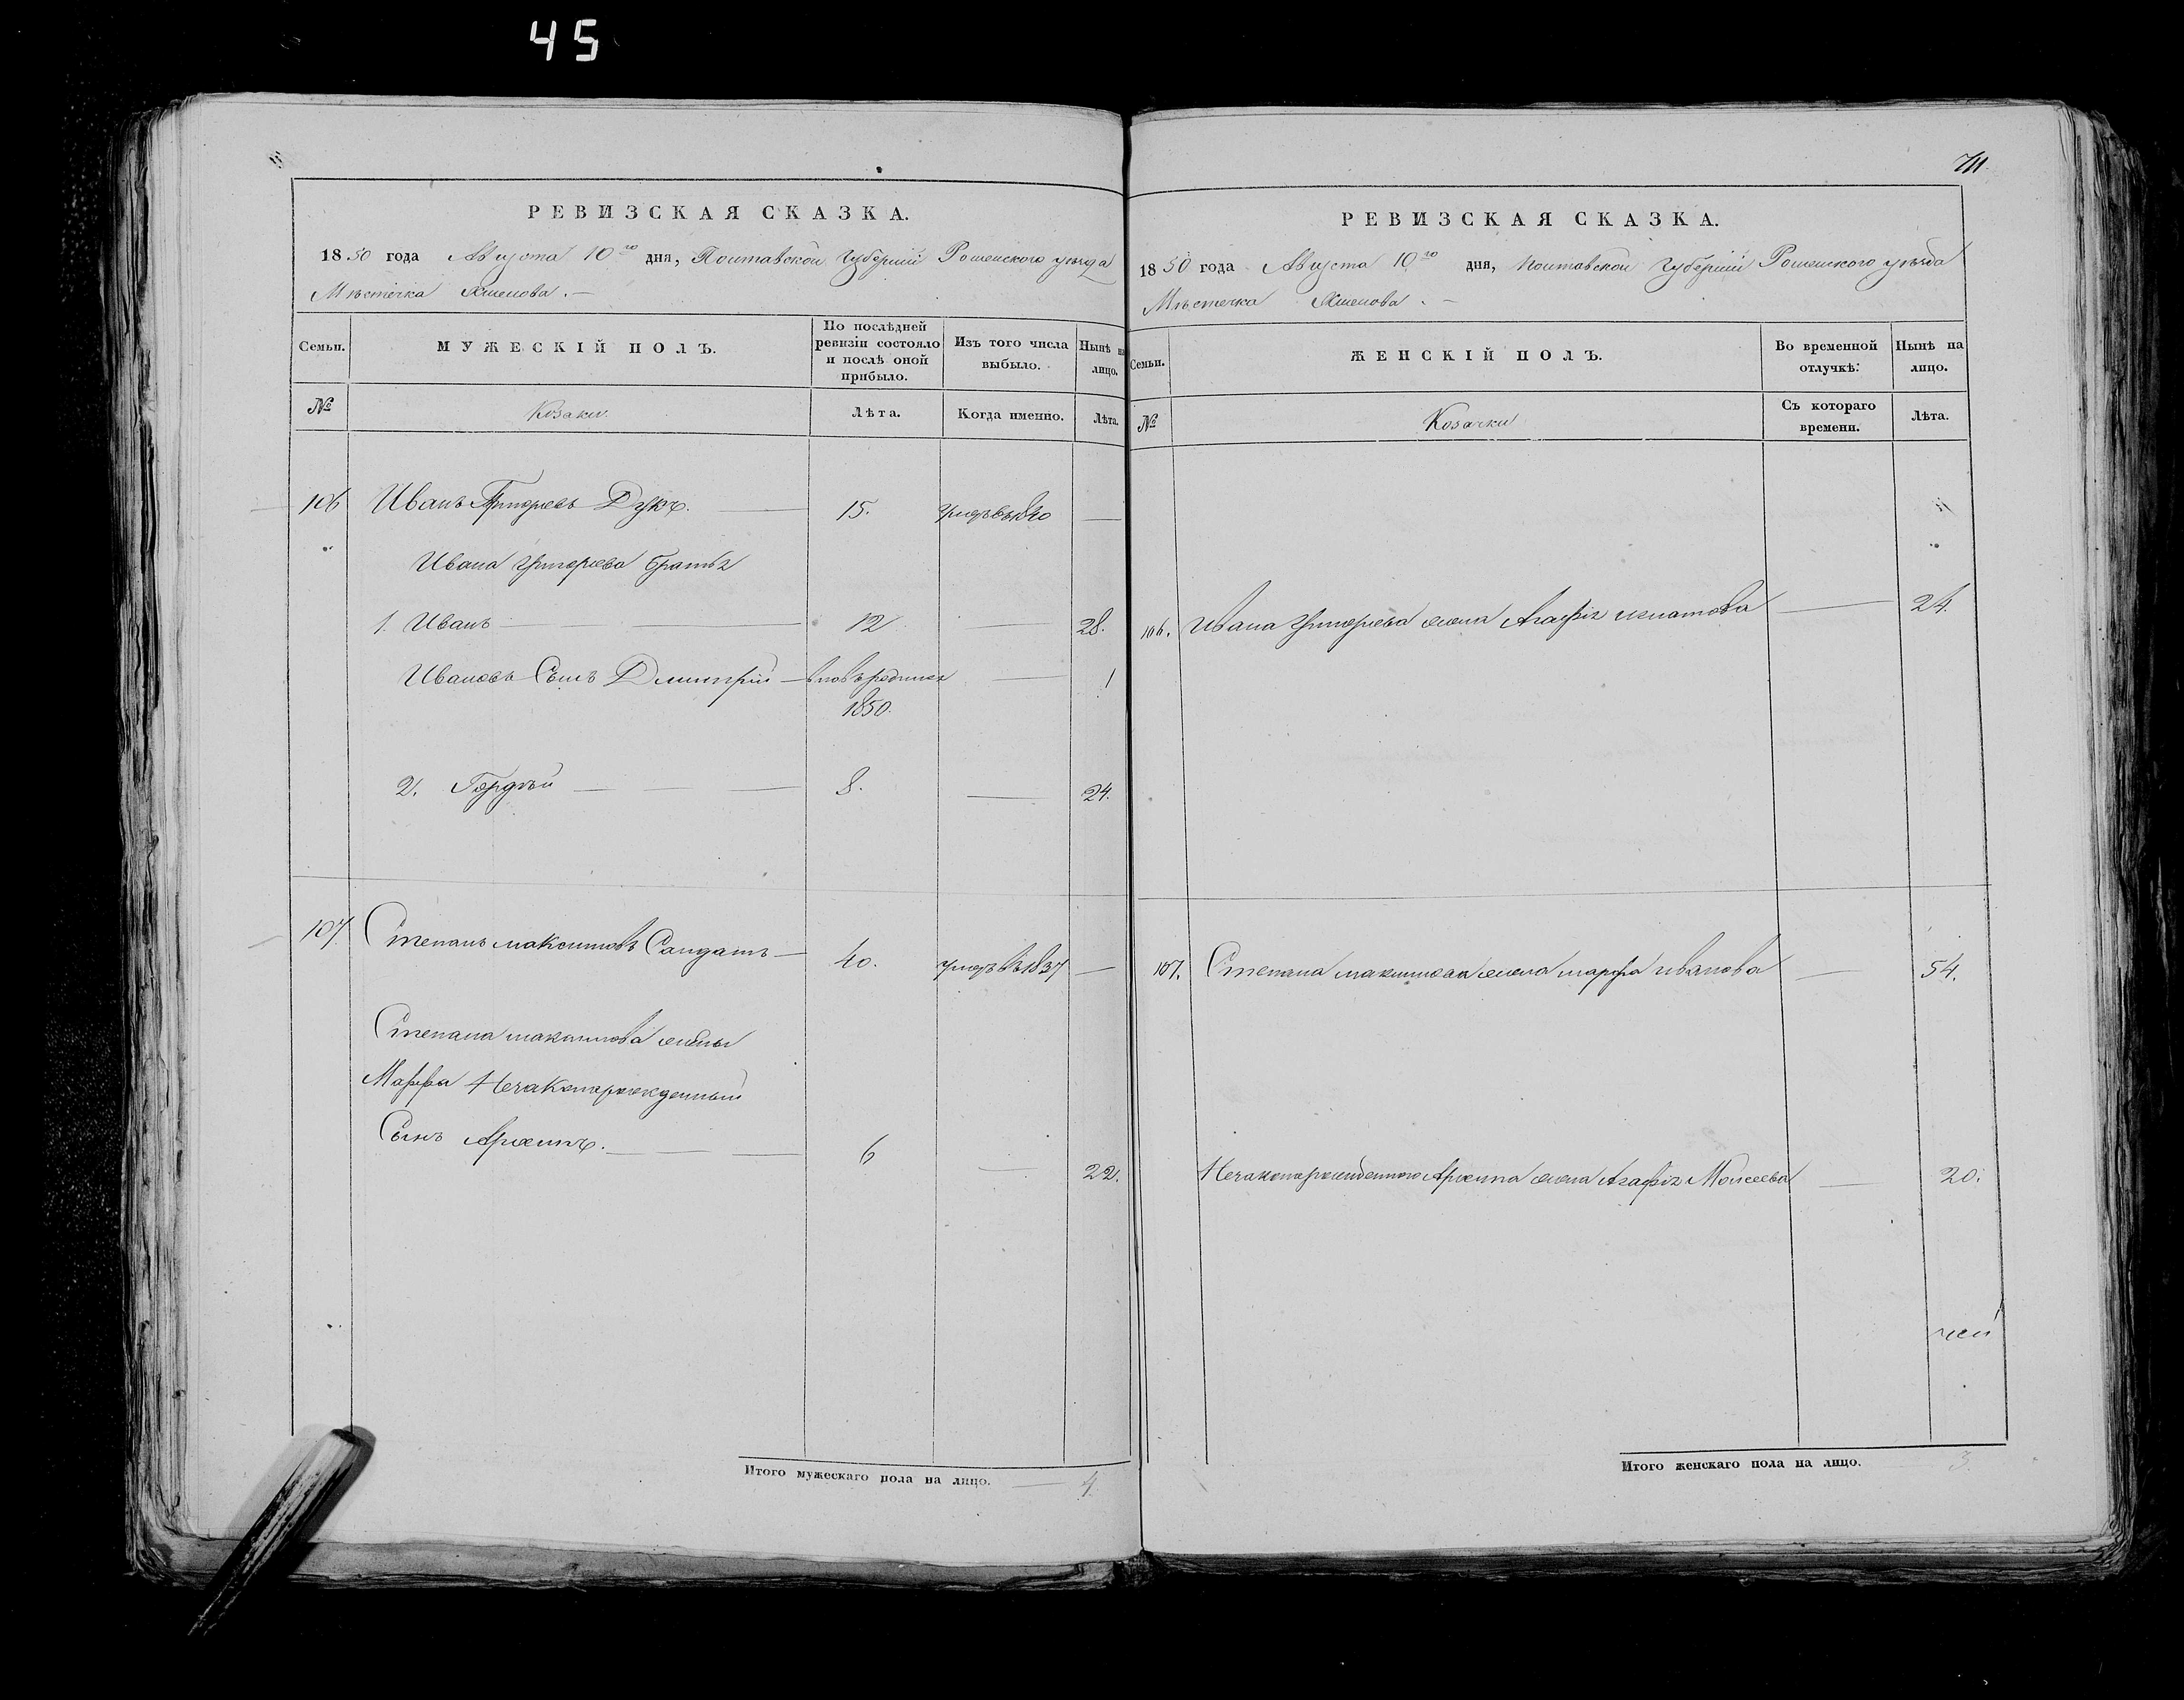 45
711
РЕВИЗСКАЯ СКАЗКА.
1850 года Августа 10го дня, Полтавской Губерніи Роменского уѣзда
Мѣстечка Хмелова.
Семьи. МУЖЕСКІЙ ПОЛЪ. По послѣдней ревизіи состояло и послѣ оной прибыло. Изъ того числа выбыло. Нынѣ на лицо.
№ Козаки. Лѣта. Когда именно. Лѣта.
106 Иванъ Григорьевъ Дукъ. 15. умеръ въ 1840
Ивана Григорьева братья
1. Иванъ 12 28.
Ивановъ Сынъ Дмитрій вновь родился 1
1850.
2. Гордѣй 8. 24.
107 Степанъ Максимовъ 40. умеръ въ 1837
Степана Максимова жены
Марфы Незаконнорожденный
Сынъ Архипъ. 6 22.
Итого мужескаго пола на лицо. 4.
РЕВИЗСКАЯ СКАЗКА.
1850 года Августа 10го дня, Полтавской Губерніи Роменского уѣзда
Мѣстечка Хмелова.
Семьи. ЖЕНСКІЙ ПОЛЪ. Во временной отлучкѣ. Нынѣ на лицо.
№ Козачки Съ котораго времени. Лѣта.
106. Ивана Григорьева жена Агафія Игнатова 24.
107. Степана Максимова жена Марфа Иванова 54.
Незаконнорожденного Архипа жена Агафія Моисеева 20.
Итого женскаго пола на лицо. 3.